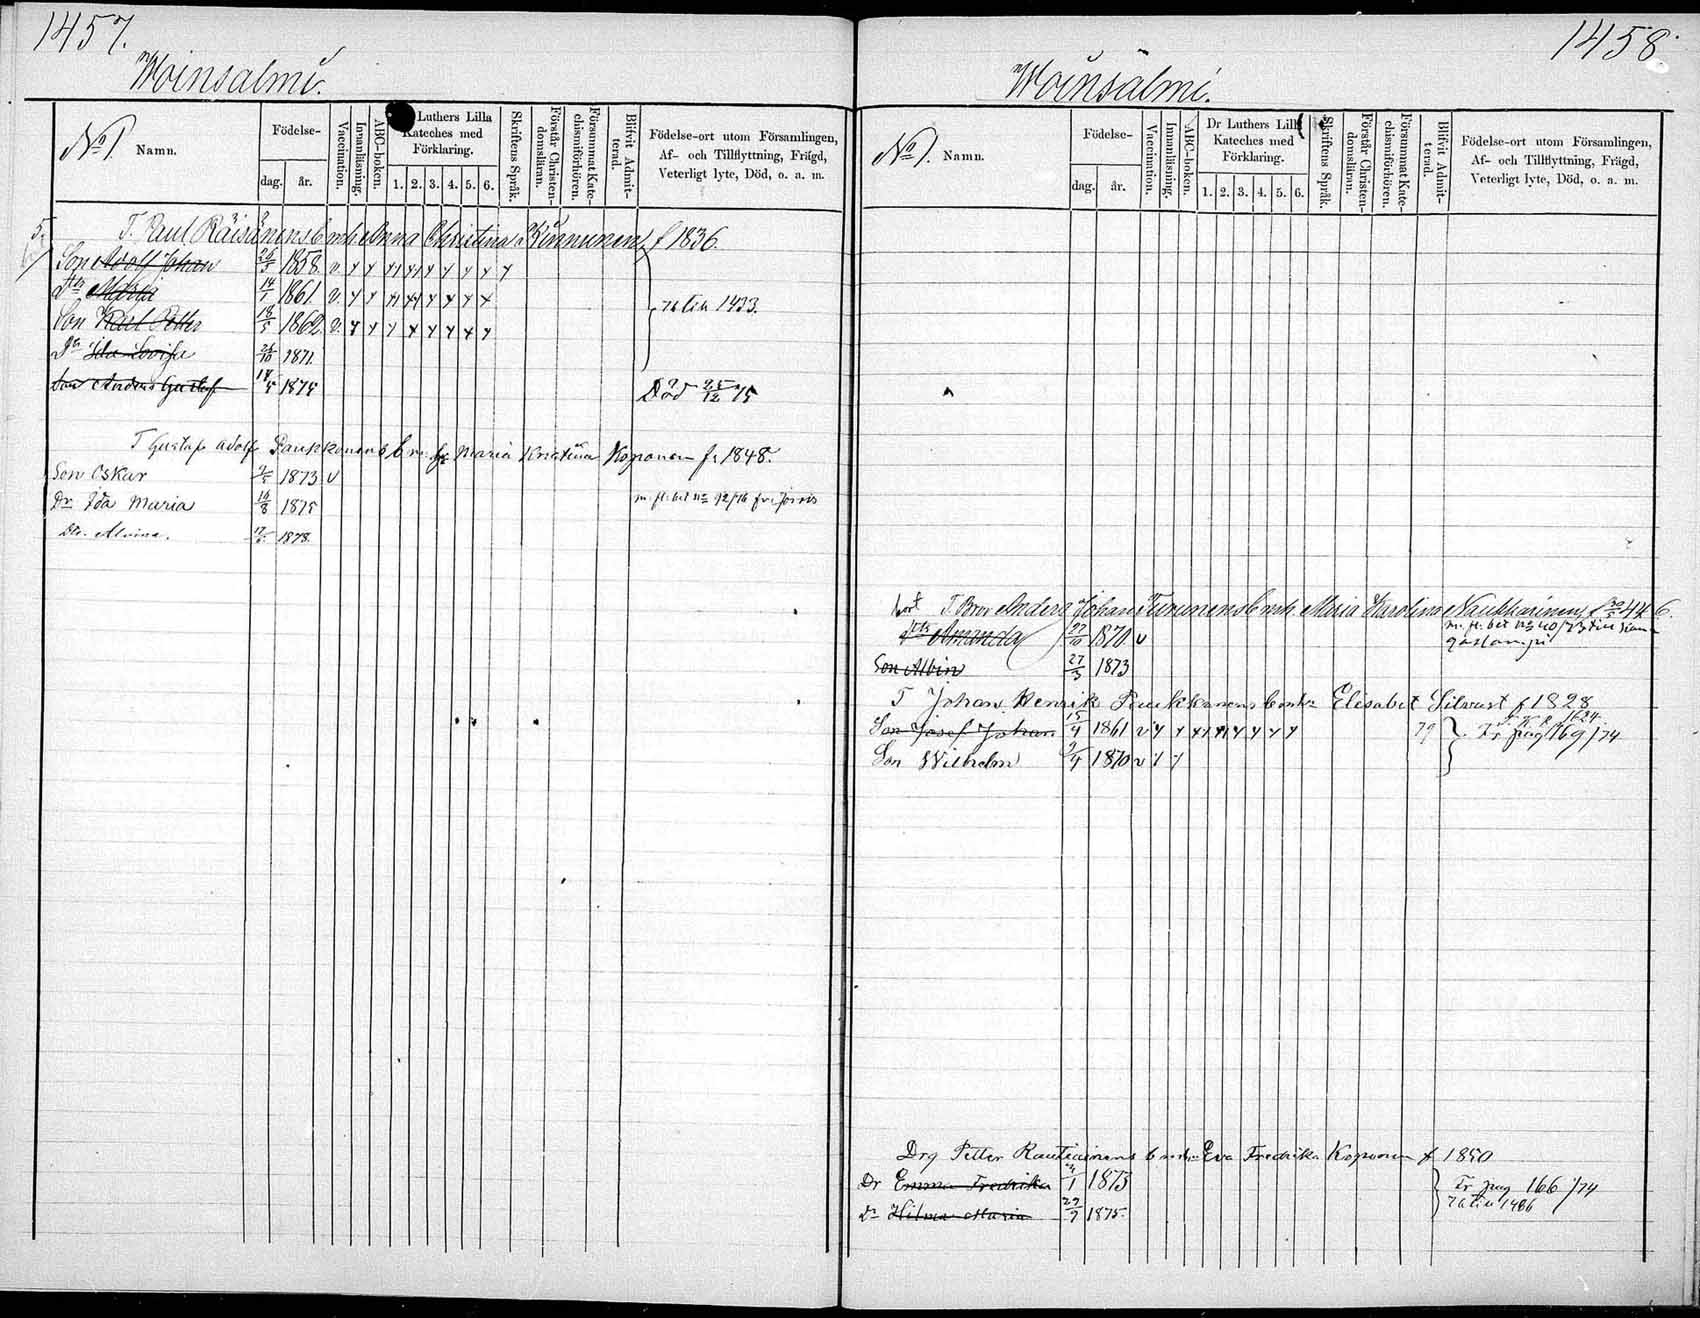 1457.
Woinsalmi.
No 1. Namn.
Födelse-
dag. år.
Vaccination.
Innanläsning.
ABC-boken.
Luthers Lilla Kateches med Förklaring.
1. 2. 3. 4. 5. 6.
Skriftens Språk.
Förstår Christendomsläran.
Försummat Katechismiförhören.
Blifvit Admitterad.
Födelse-ort utom Församlingen,
Af- och Tillflyttning, Frägd,
Veterligt lyte, Död, o. a. m.
5.
T. Paul Räisänens b mh Anna Christina Kinnunen f 1836.
Son Adolf Johan 26/3 1858 v.
Dtr Maria 14/1 1861 v.
76 till 1433.
Son Karl Petter 18/5 1862 v.
Dr Ida Lovisa 26/10 1871.
Son Anders Gustaf 14/5 1875 Död 25/12 75
T Gustaf Adolf Paukkonens b m. Maria Kristina Koponen f. 1848.
Son Oskar 9/5 1873 v
Dr Ida Maria 16/8 1875 m. fl. bet no 92/76 fr. Jorois
Dtr. Alvina. 17/6 1878.
1458.
Woinsalmi.
No 1. Namn.
Födelse-
dag. år.
Vaccination.
Innanläsning.
ABC-boken.
Dr Luthers Lilla Kateches med Förklaring.
1. 2. 3. 4. 5. 6.
Skriftens Språk.
Förstår Christendomsläran.
Försummat Katechismiförhören.
Blifvit Admitterad.
Födelse-ort utom Församlingen,
Af- och Tillflyttning, Frägd,
Veterligt lyte, Död, o. a. m.
bort T. Bror Anders Johan Turunens b mh. Maria Karolina Naukkarinen
Dtr Amanda 27/10 1870 v
m. fl. bet no 40/73 till
Son Albin 27/3 1873
T Johan Henrik Paukkonens b mh Elisabet Silvast f 1828
1624.
Son Josef Johan 15/4 1861 v 79 Fr pag 169/74
Son Wilhelm 9/4 1870 v
Drg Petter Rautiainens b mh Eva Fredrika Koponen f 1850
Dr Emma Fredrika 1873 Fr pag 166/74
76 till 1486
Dr Hilma Maria 29/7 1875.